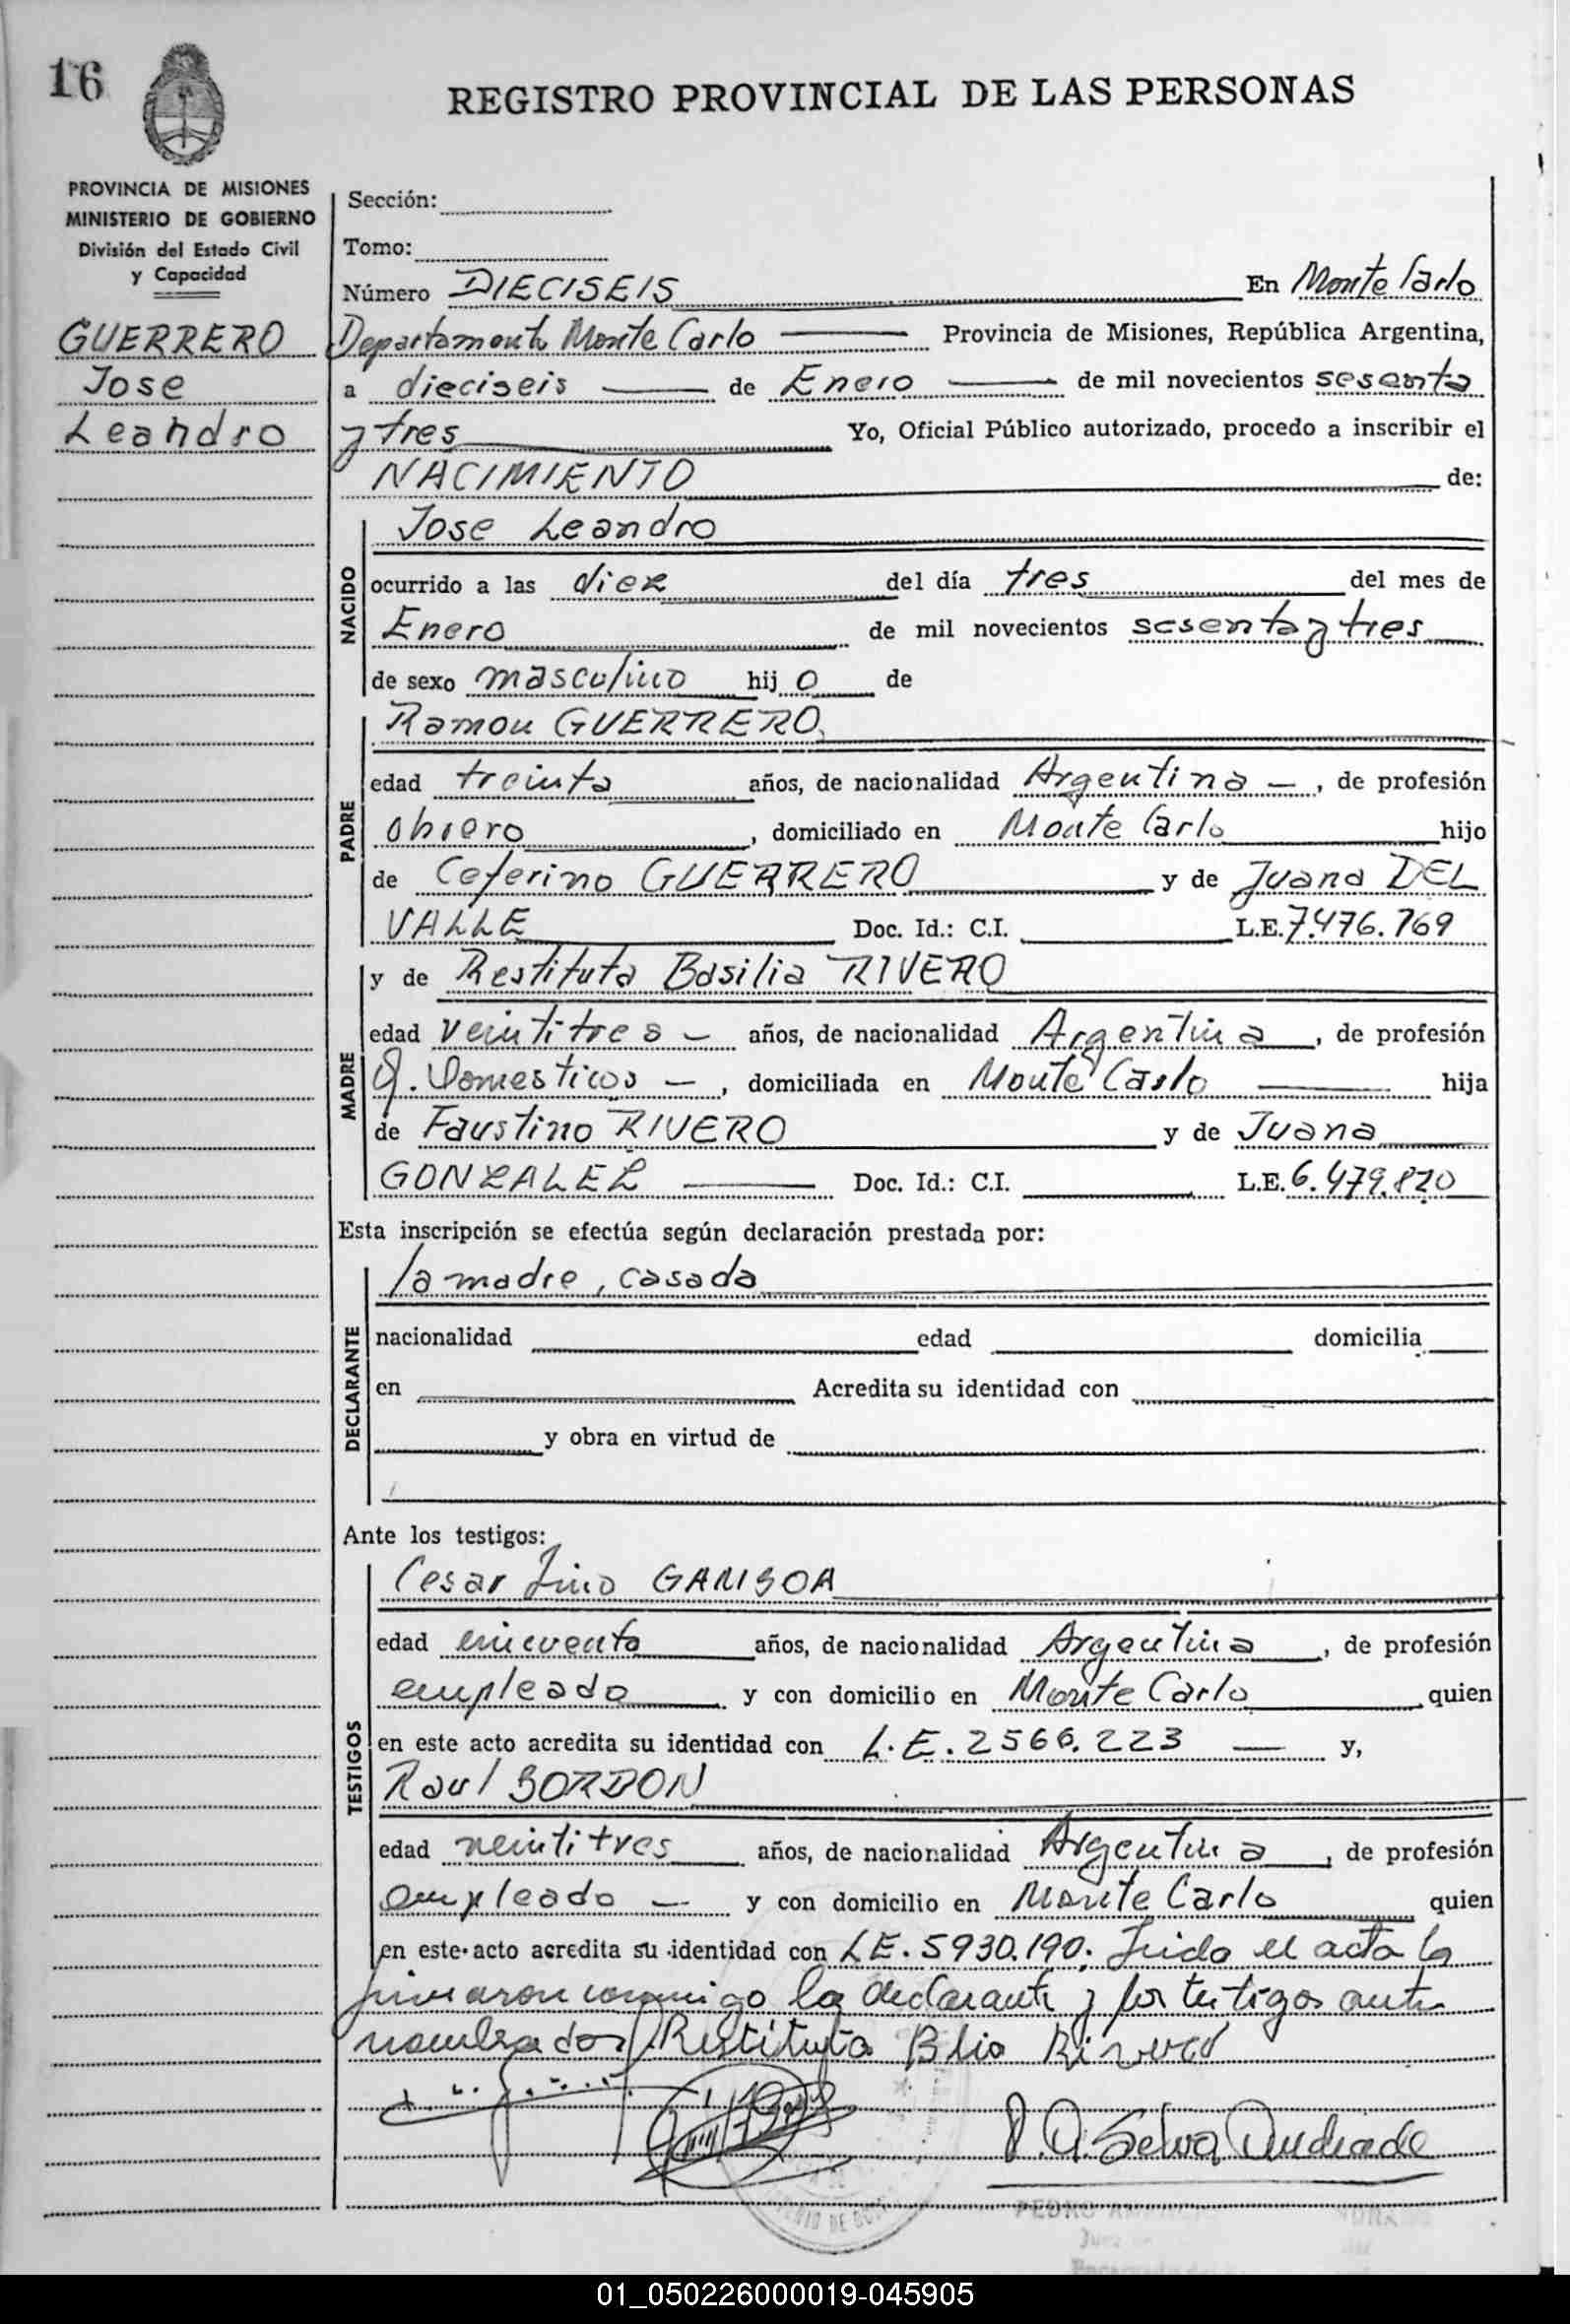 16
REGISTRO PROVINCIAL DE LAS PERSONAS
PROVINCIA DE MISIONES
MINISTERIO DE GOBIERNO
División del Estado Civil
y Capacidad
GUERRERO
Jose
Leandro
Sección:
Tomo:
Número DIECISEIS En Monte Carlo
Departamento Monte Carlo Provincia de Misiones, República Argentina,
a dieciseis de Enero de mil novecientos sesenta
y tres Yo, Oficial Público autorizado, procedo a inscribir el
NACIMIENTO de:
NACIDO
Jose Leandro
ocurrido a las diez del día tres del mes de
Enero de mil novecientos sesenta y tres
de sexo masculino hij o de
PADRE
Ramon GUERRERO
edad treinta años, de nacionalidad Argentina -, de profesión
obrero, domiciliado en Monte Carlo hijo
de Ceferino GUERRERO y de Juana DEL
VALLE Doc. Id.: C.I. L.E. 7.476.769
MADRE
y de Restituta Basilia RIVERO
edad veintitres - años, de nacionalidad Argentina, de profesión
Q. Domesticos -, domiciliada en Monte Carlo hija
de Faustino RIVERO y de Juana
GONZALEZ Doc. Id.: C.I. L.E. 6.479.820
Esta inscripción se efectúa según declaración prestada por:
DECLARANTE
la madre, casada
nacionalidad edad domicilia
en Acredita su identidad con
y obra en virtud de
Ante los testigos:
TESTIGOS
Cesar Lino GAMBOA
edad cincuenta años, de nacionalidad Argentina, de profesión
empleado y con domicilio en Monte Carlo quien
en este acto acredita su identidad con L.E. 2566.223 - y,
Raul BORDON
edad veintitres años, de nacionalidad Argentina, de profesión
empleado - y con domicilio en Monte Carlo quien
en este acto acredita su identidad con LE. 5930.190. Leida el acta la
firmaron conmigo la declarante y los testigos ante
nombrados Restituta Blia Rivero
Selva Andrade
PEDRO
01_050226000019-045905